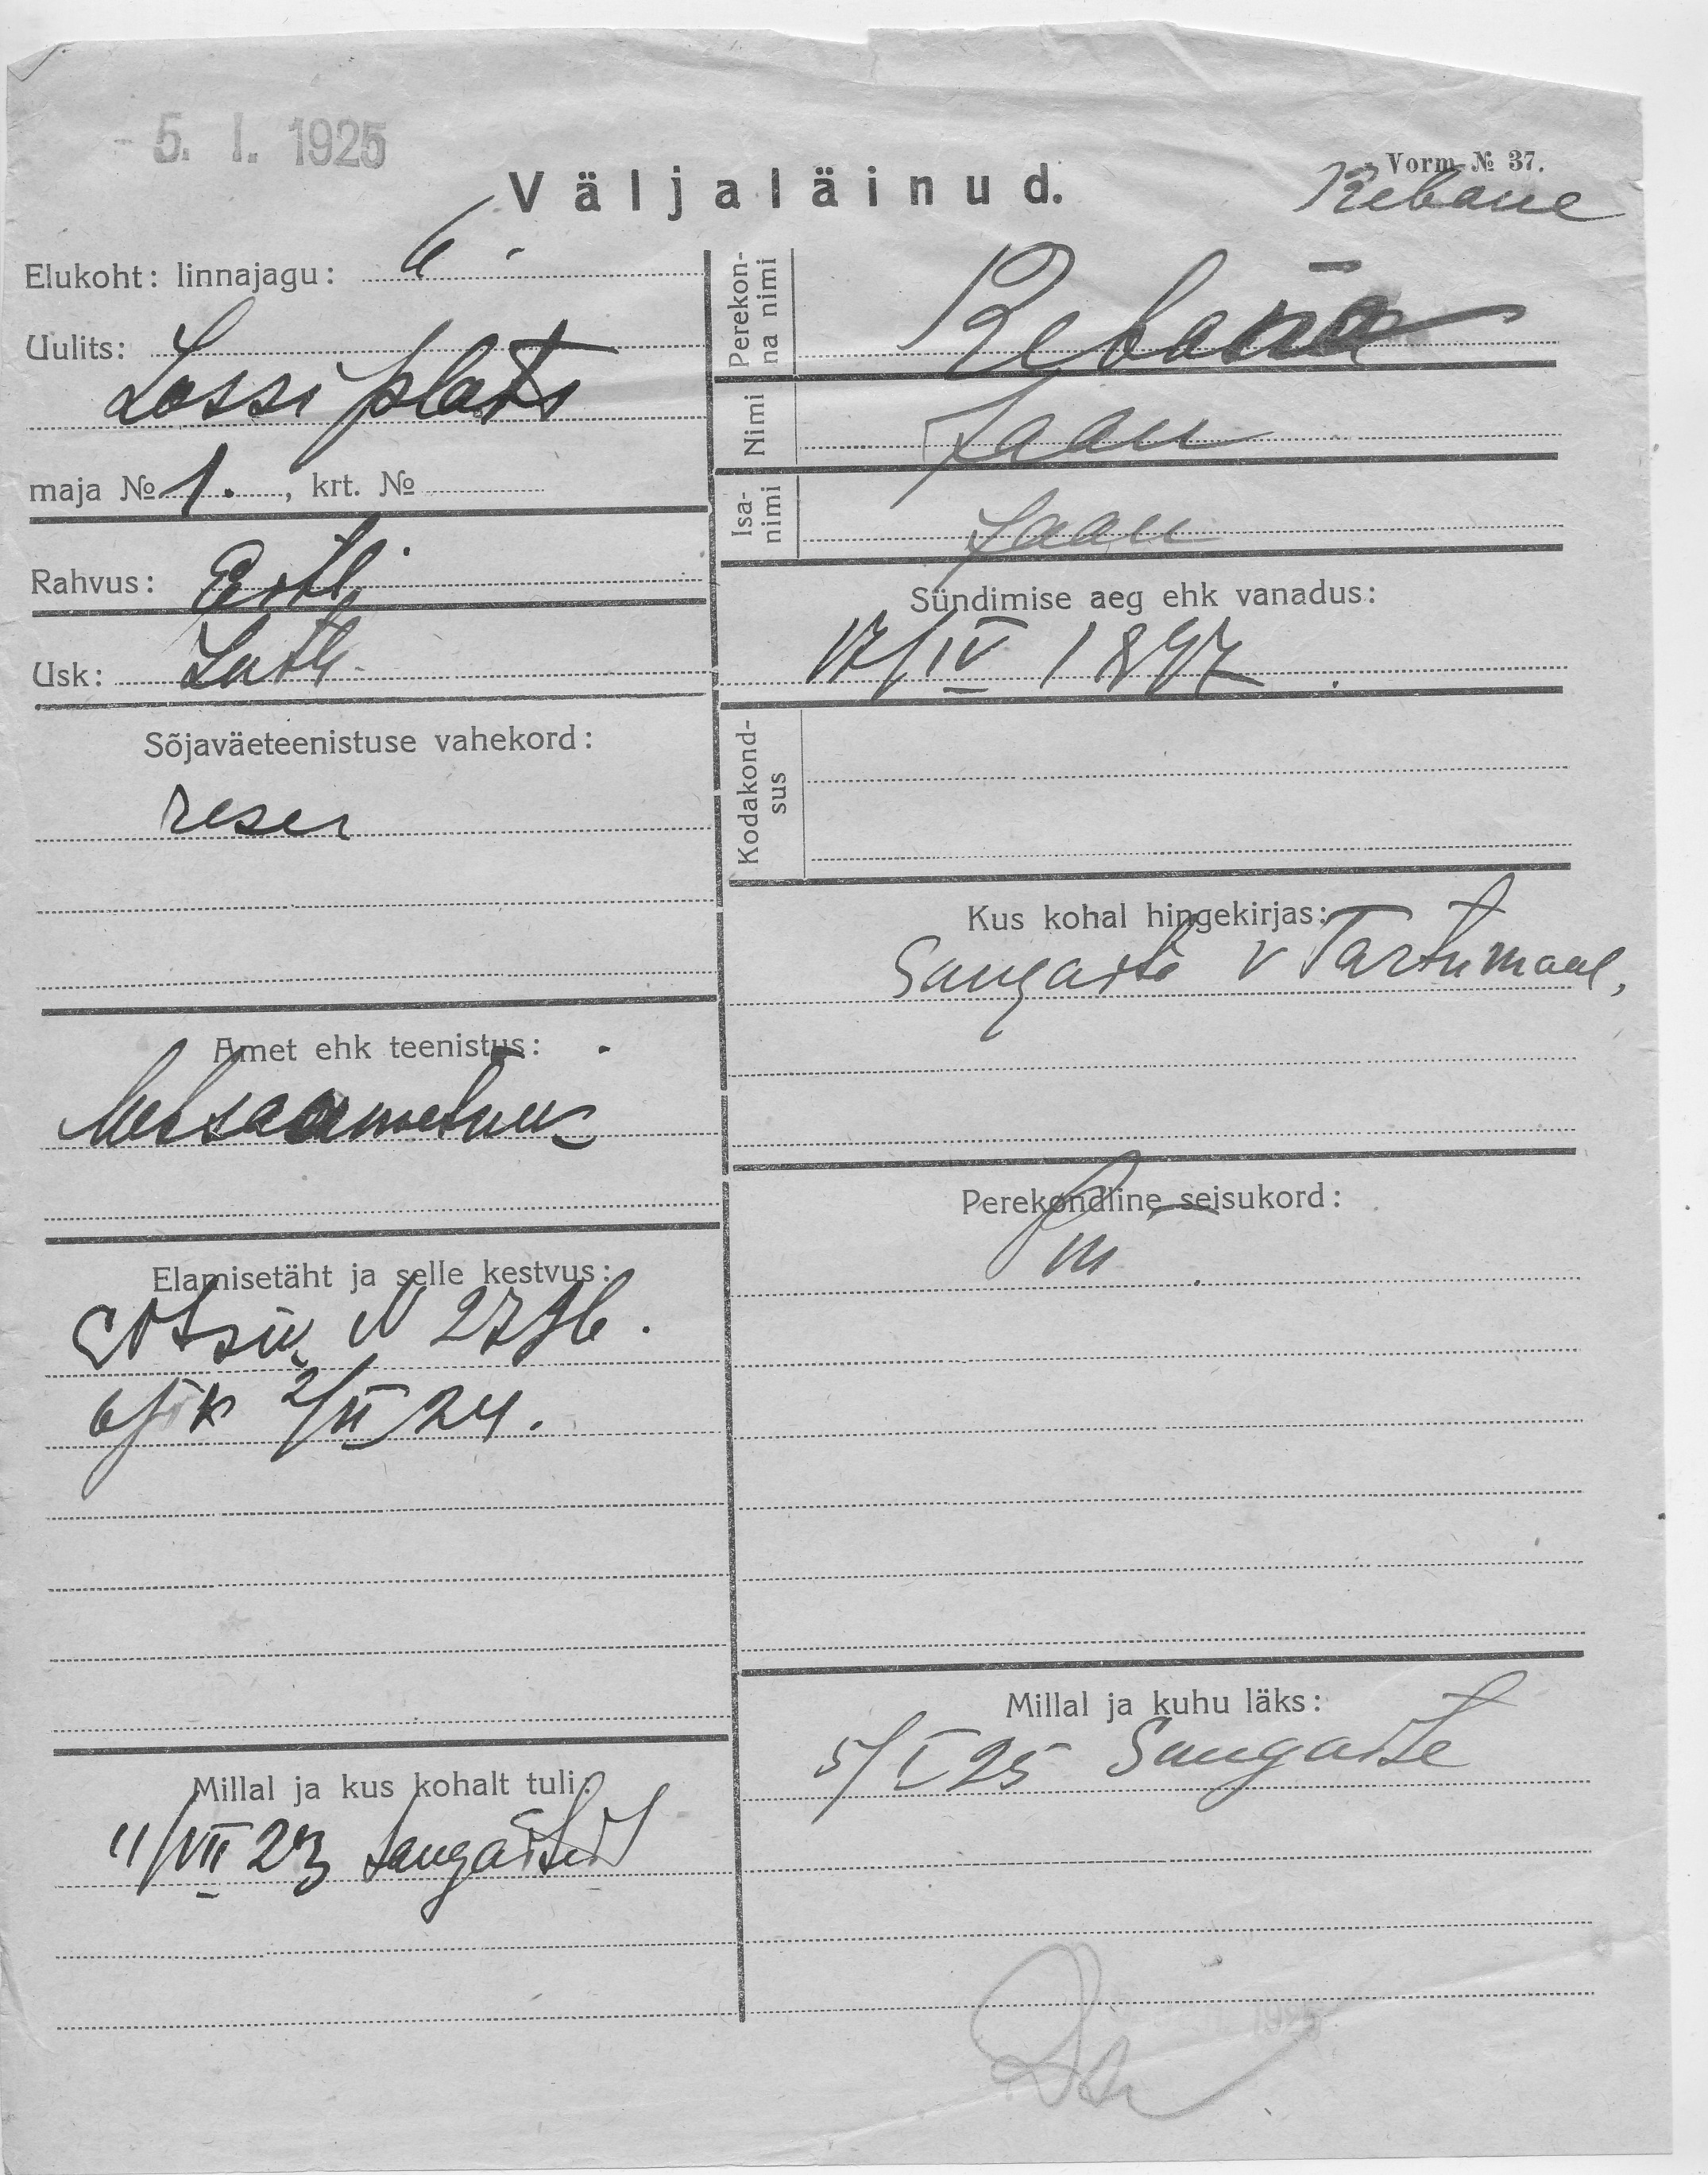 5. I. 1925
Vorm № 37.
Väljaläinud.
Rebane
Elukoht: linnajagu: 6
Uulits:
Lossi plats
maja № 1. , krt. №
Rahvus: Eestl.
Usk: Luth.
Sõjaväeteenistuse vahekord:
reser
Amet ehk teenistus:
Metsaametnik
Elamisetäht ja selle kestvus:
N 2796.
2/II 24.
Millal ja kus kohalt tuli:
11/VII 23 Sangastest
Perekonna nimi
Rebane
Nimi
Jaan
Isanimi
Jaan
Sündimise aeg ehk vanadus:
17/IV 1897
Kodakondsus
Kus kohal hingekirjas:
Sangaste v Tartumaal,
Perekondline seisukord:
Millal ja kuhu läks:
5/I 25 Sangaste